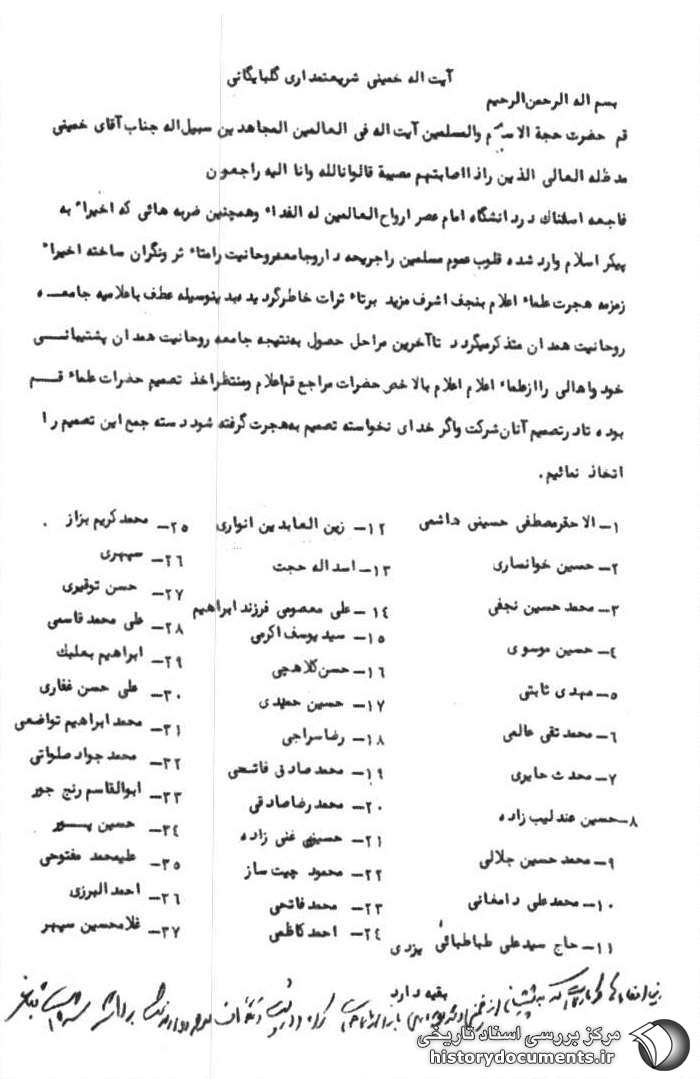 آیت اله خمینی شریعتمداری گلپایگانی
بسم اله الرحمن الرحیم
قم حضرت حجة الاسلام والمسلمین آیت اله فی العالمین المجاهدین سبیل اله جناب آقای خمینی
مد ظله العالی الذین اذا اصابتهم مصیبة قالوانالله وانا الیه راجعون
فاجعه اسفناك در دانشگاه امام عصر ارواح العالمین له الفداء وهمچنین ضربه هائی که اخیراً به
پیکر اسلام وارد شده قلوب عموم مسلمین راجریحه داروجامعه روحانیت رامتاءثر ونگران ساخته اخیراً
زمزمه هجرت علماء اعلام بنجف اشرف مزید برتاءثرات خاطرگردید بدینوسیله عطف باعلامیه جامعه
روحانیت همدان متذکرمیگردد تاآخرین مراحل حصول به نتیجه جامعه روحانیت همدان پشتیبانی
خود واهالی راازعلماء اعلام اعلام بالاخص حضرات مراجع قم اعلام ومنتظراخذ تصمیم حضرات علماء قم
بوده تادرتصمیم آنان شرکت واگر خدای نخواسته تصمیم به هجرت گرفته شود دسته جمع این تصمیم را
اتخاذ نمائیم.
۱- الاحقرمصطفی حسینی هاشمی
۲- حسین خوانساری
۳- محمد حسین نجفی
۴- حسین موسوی
۵- مهدی ثابتی
۶- محمد تقی عالمی
۷- محدث حایری
۸- حسین عندلیب زاده
۹- محمد حسین جلالی
۱۰- محمدعلی دامغانی
۱۱- حاج سیدعلی طباطبائی یزدی
۱۲- زین العابدین انواری
۱۳- اسداله حجت
۱۴- علی معصومی فرزند ابراهیم
۱۵- سید یوسف اکرمی
۱۶- حسن کلاهچی
۱۷- حسین حمیدی
۱۸- رضاسراجی
۱۹- محمد صادق فاتحی
۲۰- محمد رضاصادقی
۲۱- حسین غنی زاده
۲۲- محمود چیت ساز
۲۳- محمدفاتحی
۲۴- احمد کاظمی
۲۵- محمدکریم بزاز
۲۶- سپهری
۲۷- حسن توقیری
۲۸- علی محمد قاسمی
۲۹- ابراهیم بعلبك
۳۰- علی حسن غفاری
۳۱- محمدابراهیم تواضعی
۳۲- محمد جواد صلواتی
۳۳- ابوالقاسم رنج جور
۳۴- حسین پور
۳۵- علیمحمد مفتوحی
۳۶- احمد البرزی
۳۷- غلامحسین سپهر
بقیه دارد
مرکز بررسی اسناد تاریخی
historydocuments.ir